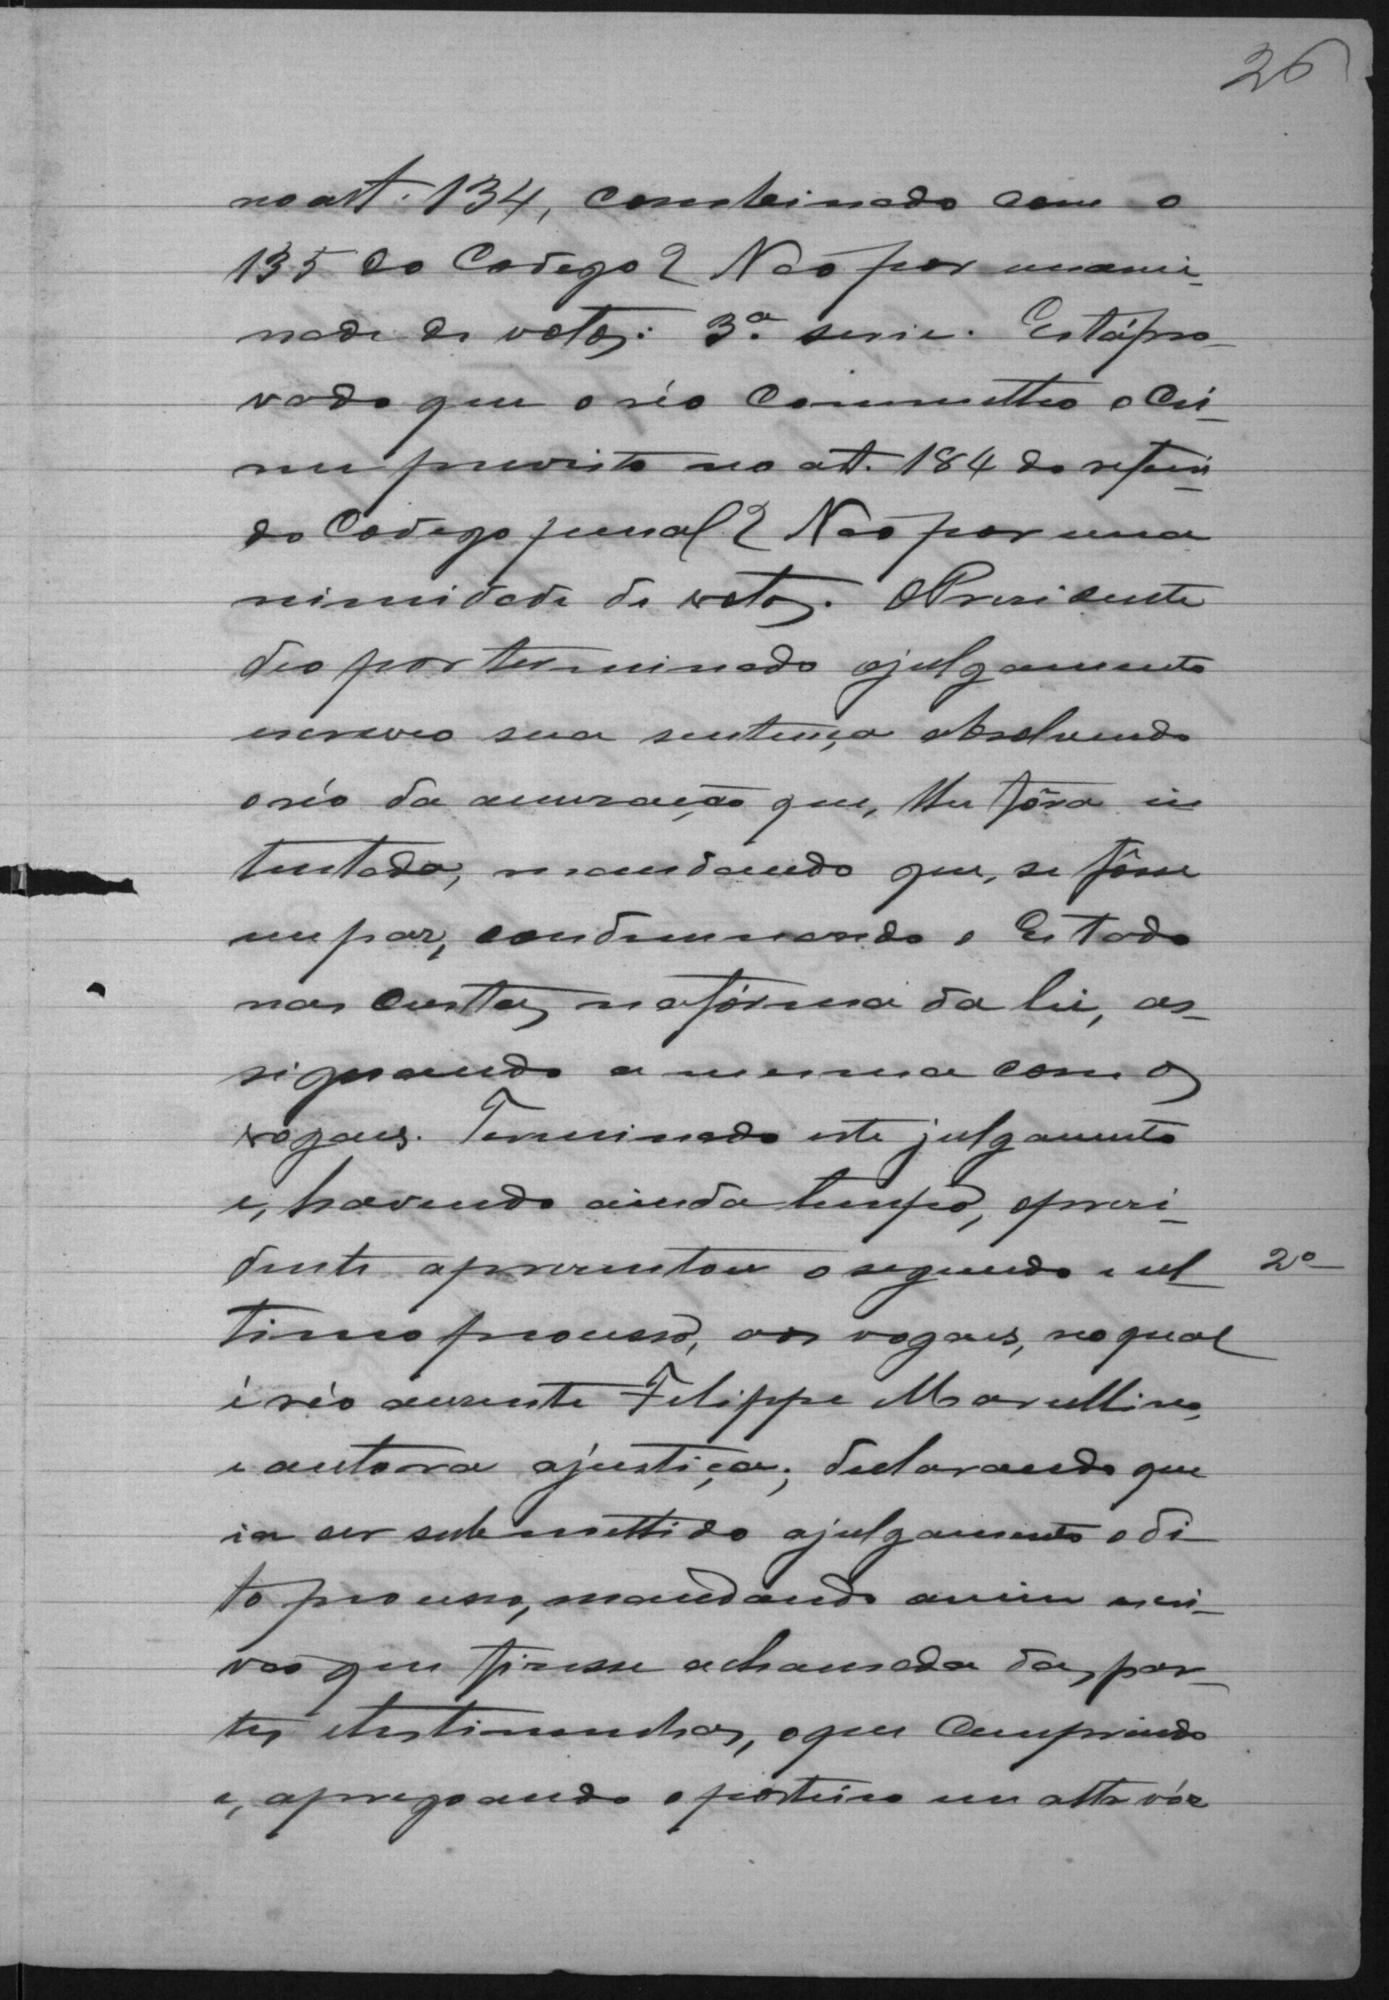 26
no art. 134, combinado com o
135 do Codego? Não por unani-
nade de votos: 3ª serie. Está pro-
vado que o réo commetteo o cri-
me previsto no art. 184 do referi-
do Codego penal? Não por una
nimidade de votos. O Presidente
deo por terminado o julgamento
escreveo sua sentença absolvendo
o réo da accusação que, lhe fôra in
tentada, mandando que, se fôsse
em paz, condemnando o Estado
nas custas, na fórma da lei, as-
signando a mesma com os
vogaes. Terminado este julgamento
e, havendo ainda tempo, o presi-
dente apresentou o segundo e ul-
2º
timo processo, aos vogaes, no qual
é réo ausente Felippe Marcellino,
e autora a justiça; declarando que
ia ser submettido a julgamento o di-
to processo, mandando a mim escri-
vão que fizesse a chamada das par-
tes e testimunhas, o que cumprindo
e, apregoando o porteiro em alta vóz